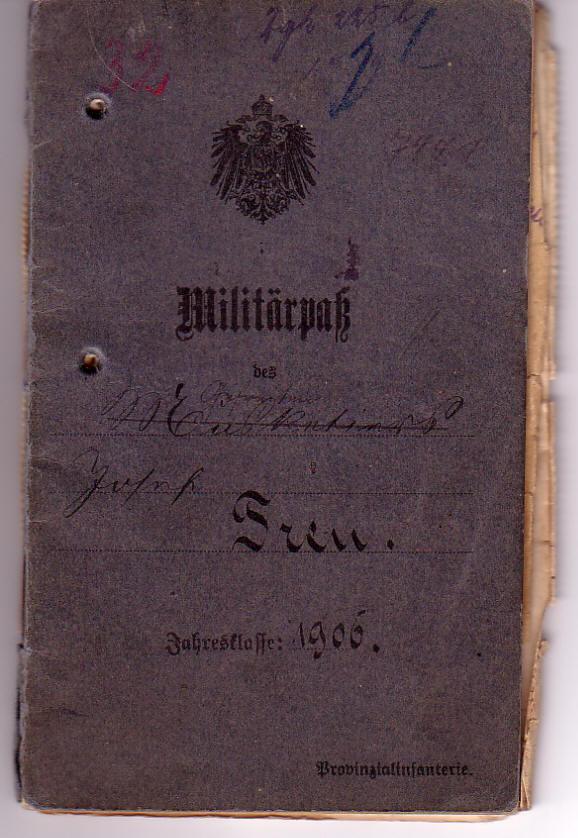 32
21
Militärpaß
des
Musketiers
Josef
Treu.
Jahresklasse: 1906.
Provinzialinfanterie.